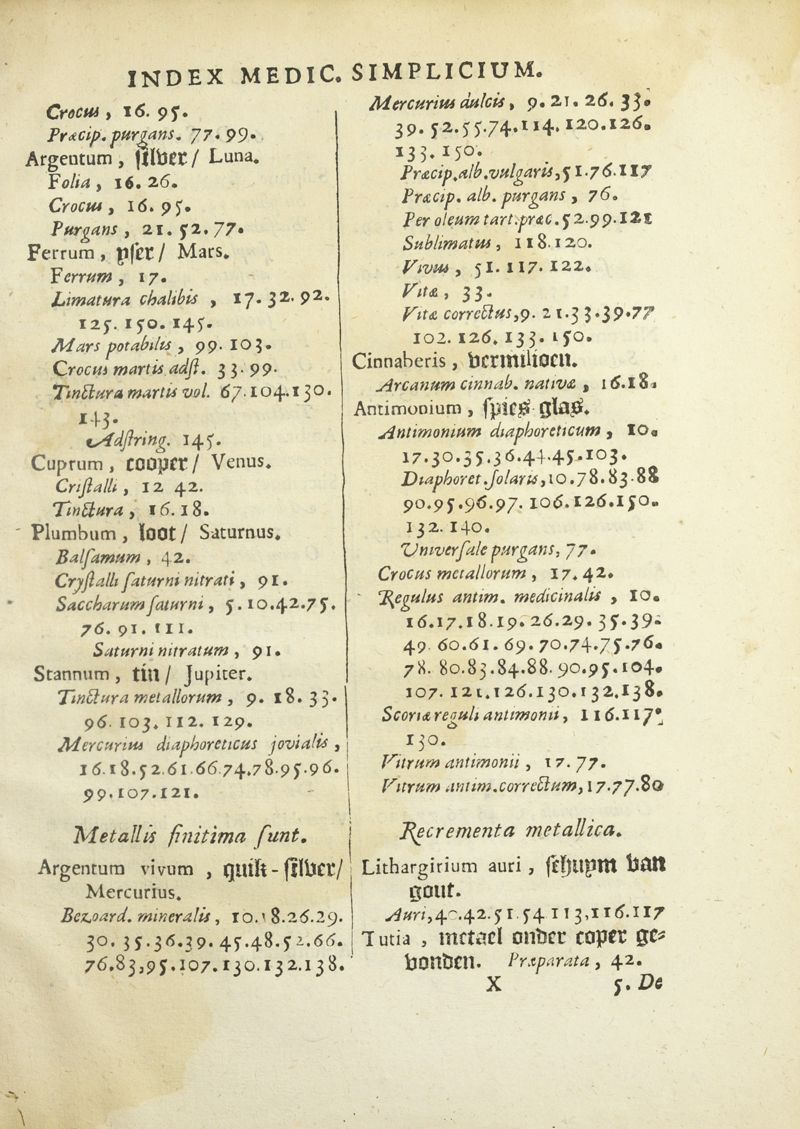 INDEX MEDIC. SIMPLICIUM.
Crocus, 16. 95.
Præcip. purgans. 77. 99.
Argentum, silber/ Luna.
Folia, 16. 26.
Crocus, 16. 95.
Purgans, 21. 52. 77.
Ferrum, yser/ Mars.
Ferrum, 17.
Limatura chalibis, 17. 32. 92.
125. 150. 145.
Mars potabilis, 99. 103.
Crocus martis adst. 33. 99.
Tinctura martis vol. 67. 104. 130.
143.
Adstring. 145.
Cuprum, cooper/ Venus.
Cristalli, 12 42.
Tinctura, 16. 18.
Plumbum, loot/ Saturnus.
Balsamum, 42.
Crystalli saturni nitrati, 91.
Saccharum saturni, 5. 10. 42. 75.
76. 91. 111.
Saturni nitratum, 91.
Stannum, tin/ Jupiter.
Tinctura metallorum, 9. 18. 33.
96. 103. 112. 129.
Mercurius diaphoreticus jovialis,
16. 18. 52. 61. 66. 74. 78. 95. 96.
99. 107. 121.
Metallis finitima sunt.
Argentum vivum, quik-silber/
Mercurius.
Bezoard. mineralis, 10. 18. 26. 29.
30. 35. 36. 39. 45. 48. 52. 66.
76. 83, 95. 107. 130. 132. 138.
Mercurius dulcis, 9. 21. 26. 33.
39. 52. 55. 74. 114. 120. 126.
133. 150.
Præcip. alb. vulgaris, 51. 76. 117
Præcip. alb. purgans, 76.
Per oleum tart. præc. 52. 99. 121
Sublimatus, 118. 120.
Vivus, 51. 117. 122.
Vitæ, 33.
Vitæ correctus, 9. 21. 33. 39. 77
102. 126. 133. 150.
Cinnaberis, vermilioen.
Arcanum cinnab. nativæ, 16. 18.
Antimonium, spies glas.
Antimonium diaphoreticum, 10.
17. 30. 35. 36. 44. 45. 103.
Diaphoret. solaris, 10. 78. 83. 88
90. 95. 96. 97. 106. 126. 150.
132. 140.
Universale purgans, 77.
Crocus metallorum, 17. 42.
Regulus antim. medicinalis, 10.
16. 17. 18. 19. 26. 29. 35. 39.
49. 60. 61. 69. 70. 74. 75. 76.
78. 80. 83. 84. 88. 90. 95. 104.
107. 121. 126. 130. 132. 138.
Scoriæ reguli antimonii, 116. 117.
130.
Vitrum antimonii, 17. 77.
Vitrum antim. correctum, 17. 77. 80
Recrementa metallica.
Lithargirium auri, schuym van
gout.
Auri, 42. 51. 54 113, 116. 117
Tutia, metael onder coper ge-
vonden. Præparata, 42.
X 5. De